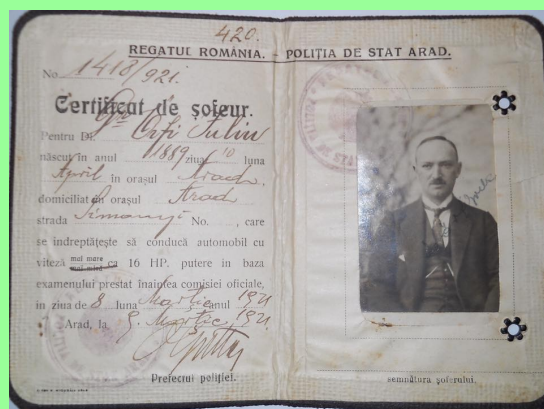 420.
REGATUL ROMÂNIA. - POLIȚIA DE STAT ARAD.
No 1418/921.
Certificat de șofeur.
Pentru Dl. Iuliu
născut în anul 1889 ziua 10 luna
April în orașul Arad.
domiciliat în orașul Arad
strada No. , care
se îndreptățește să conducă automobil cu
viteză mai mare
mai mică ca 16 HP. putere in baza
examenului prestat înaintea comisiei oficiale,
in ziua de 8 luna Martie anul 1921
Arad, la 9. Martie 1921.
Prefectul poliției.
semnătura șoferului.